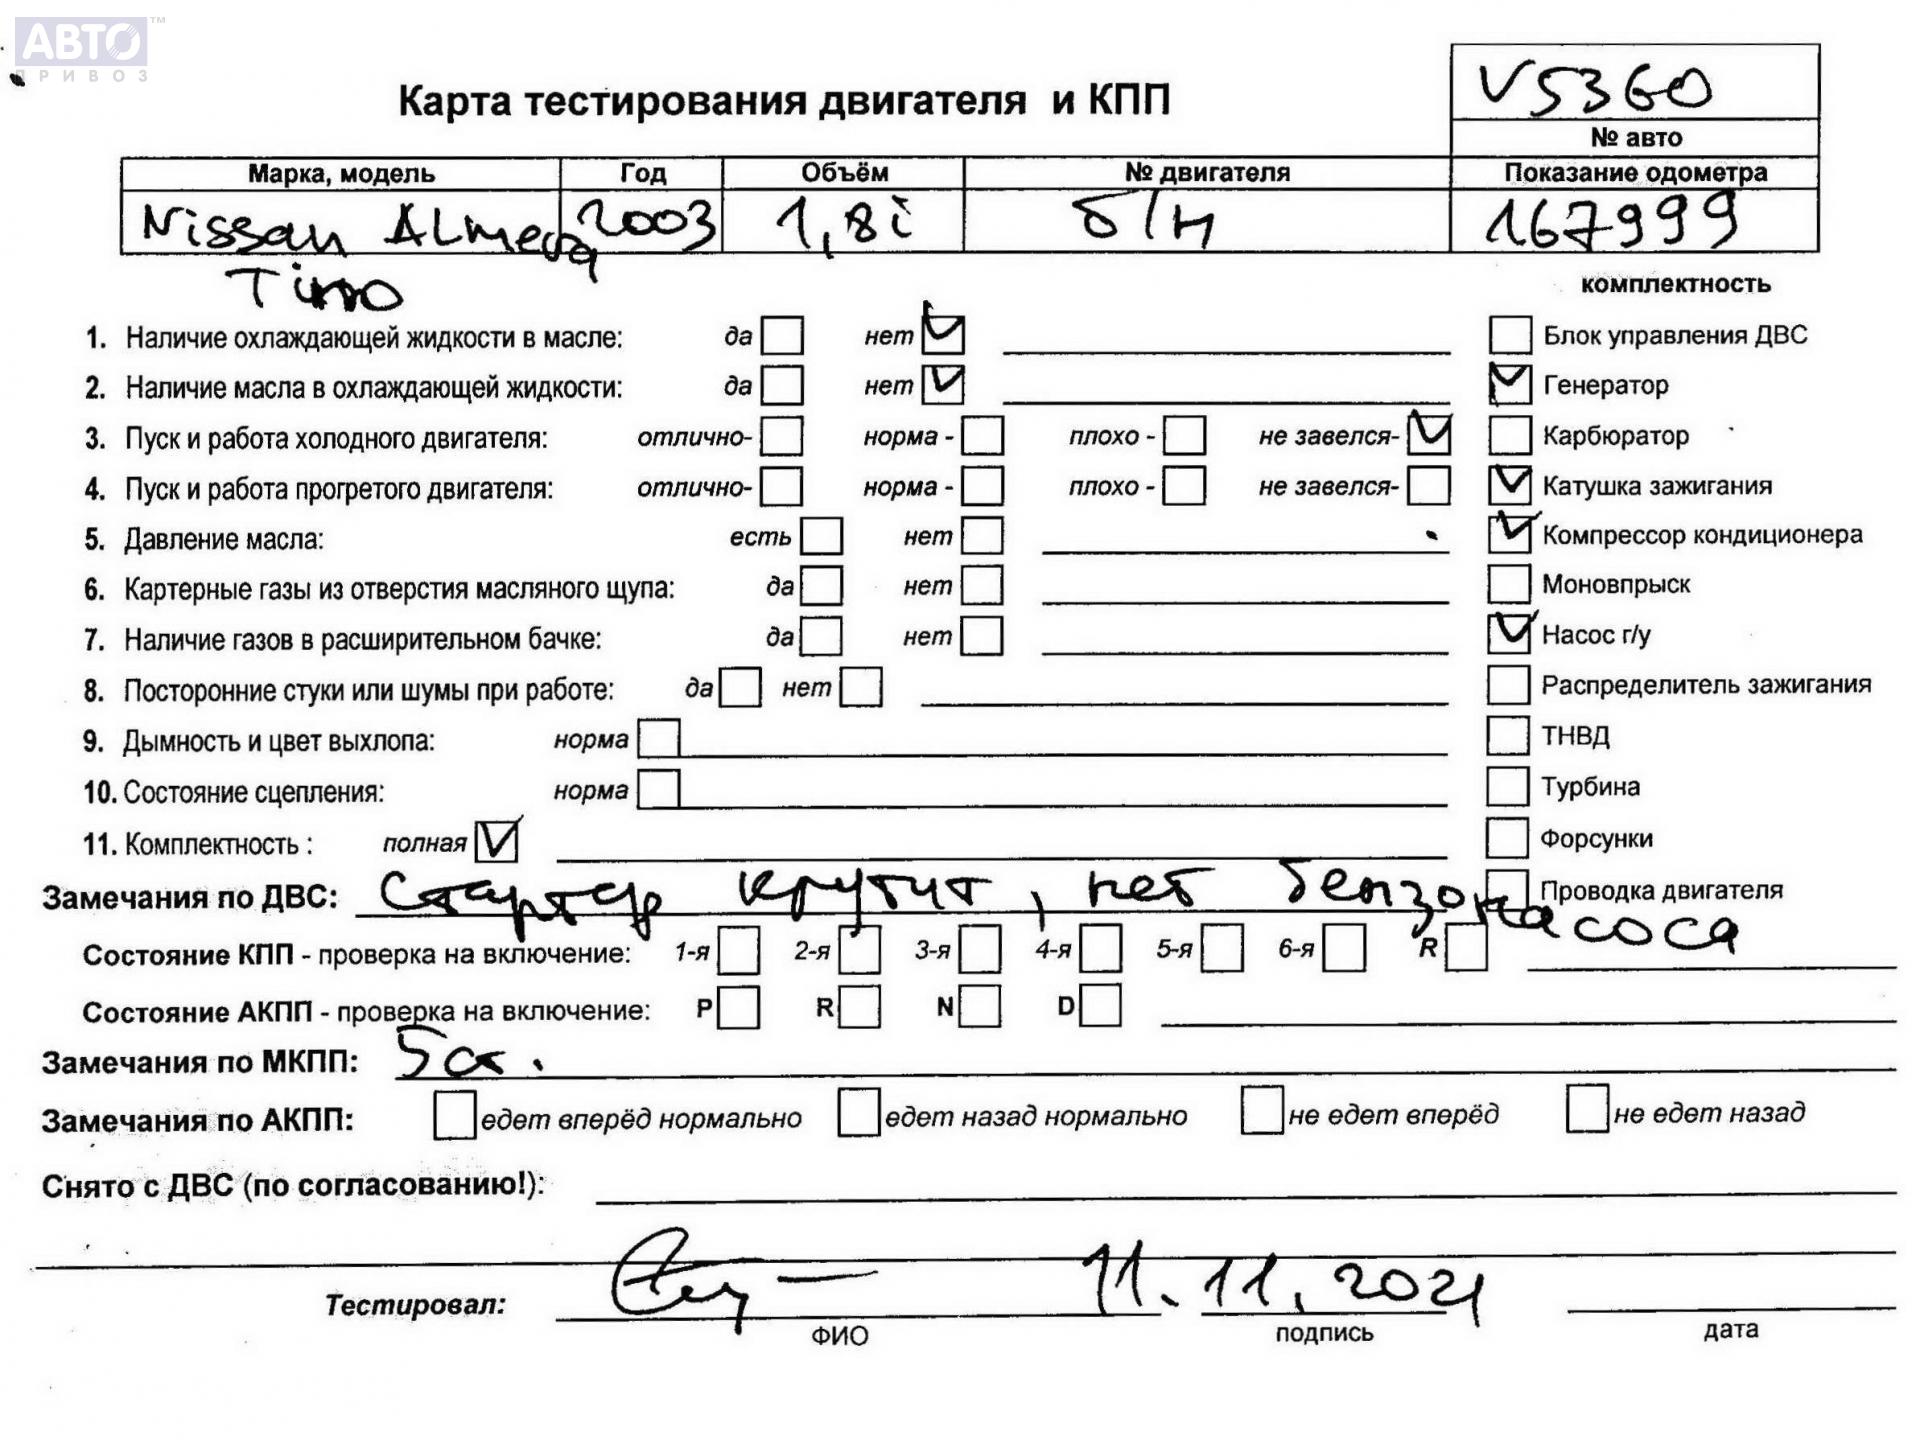 АВТО™
ПРИВОЗ
V5360
Карта тестирования двигателя и КПП
№ авто
Марка, модель Год Объём № двигателя Показание одометра
Nissan Almera 2003 1,8i б/н 167999
Tino
комплектность
1. Наличие охлаждающей жидкости в масле: да нет Блок управления ДВС
2. Наличие масла в охлаждающей жидкости: да нет Генератор
3. Пуск и работа холодного двигателя: отлично- норма - плохо - не завелся- Карбюратор
4. Пуск и работа прогретого двигателя: отлично- норма - плохо - не завелся- Катушка зажигания
5. Давление масла: есть нет Компрессор кондиционера
6. Картерные газы из отверстия масляного щупа: да нет Моновпрыск
7. Наличие газов в расширительном бачке: да нет Насос г/у
8. Посторонние стуки или шумы при работе: да нет Распределитель зажигания
9. Дымность и цвет выхлопа: норма ТНВД
10. Состояние сцепления: норма Турбина
11. Комплектность : полная Форсунки
Замечания по ДВС: Стартер крутит, нет бензонасоса Проводка двигателя
Состояние КПП - проверка на включение: 1-я 2-я 3-я 4-я 5-я 6-я R
Состояние АКПП - проверка на включение: P R N D
Замечания по МКПП: 5ст.
Замечания по АКПП: едет вперёд нормально едет назад нормально не едет вперёд не едет назад
Снято с ДВС (по согласованию!):
Тестировал: 11.11.2021
ФИО подпись дата